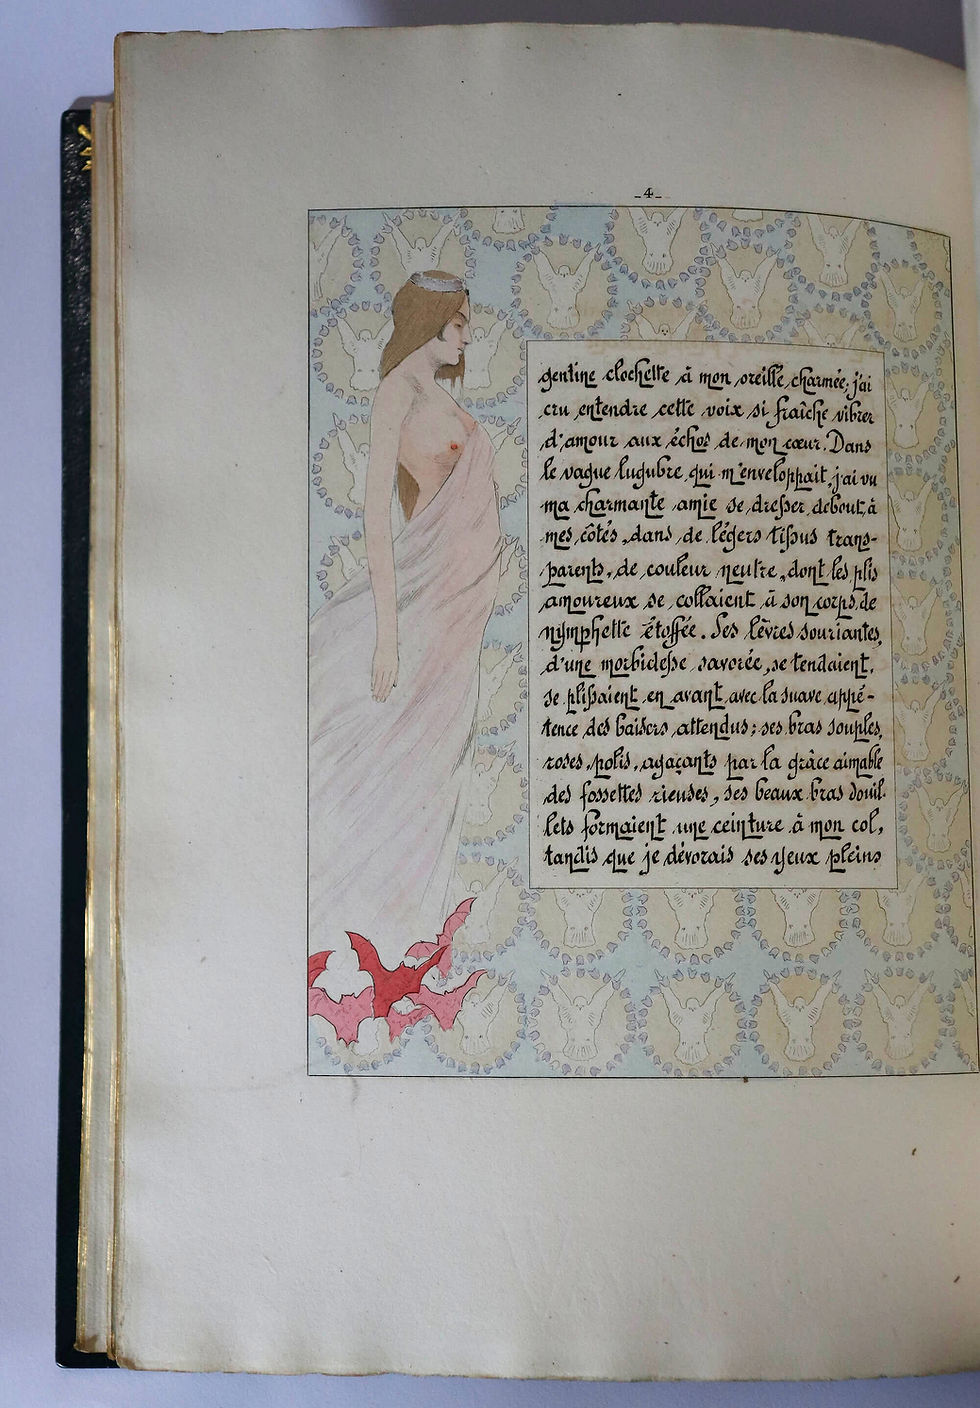 -4-
gentine clochette à mon oreille charmée; j'ai
cru entendre cette voix si fraîche vibrer
d'amour aux échos de mon cœur. Dans
le vague lugubre, qui m'enveloppait, j'ai vu
ma charmante amie se dresser debout, à
mes côtés, dans de légers tissus trans-
parents, de couleur neutre, dont les plis
amoureux se collaient à son corps de
nymphette étoffée. Ses lèvres souriantes,
d'une morbidesse savorée, se tendaient,
se plissaient en avant avec la suave appé-
tence des baisers attendus; ses bras souples,
roses, polis, agaçants par la grâce aimable
des fossettes rieuses, ses beaux bras douil-
lets formaient une ceinture à mon col,
tandis que je dévorais ses yeux pleins